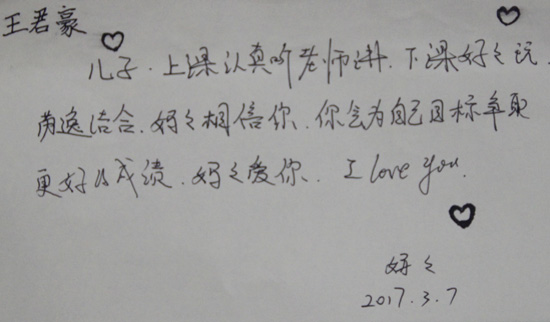 王君豪
儿子.上课认真听老师讲.下课好々玩.
劳逸结合.妈々相信你.你会为自己目标争取
更好的成绩.妈々爱你. I love you.
妈々
2017.3.7